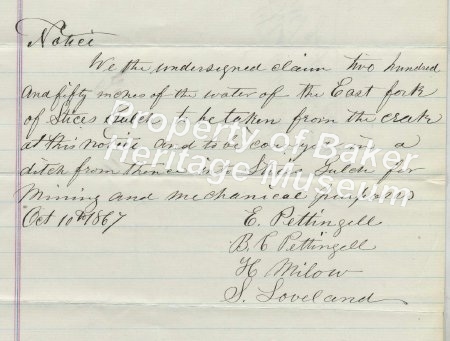 Notice
We the undersigned claim two hundred
and fifty inches of the water of the East fork
of Stices Gulch to be taken from the creake
at this notice and to be conveyed in a
ditch from thence Gulch for
Mining and mechanical purposes
Oct 10th 1867
E. Pettingell
B. C Pettingell
H Milow
S. Loveland
Property of Baker
Heritage Museum